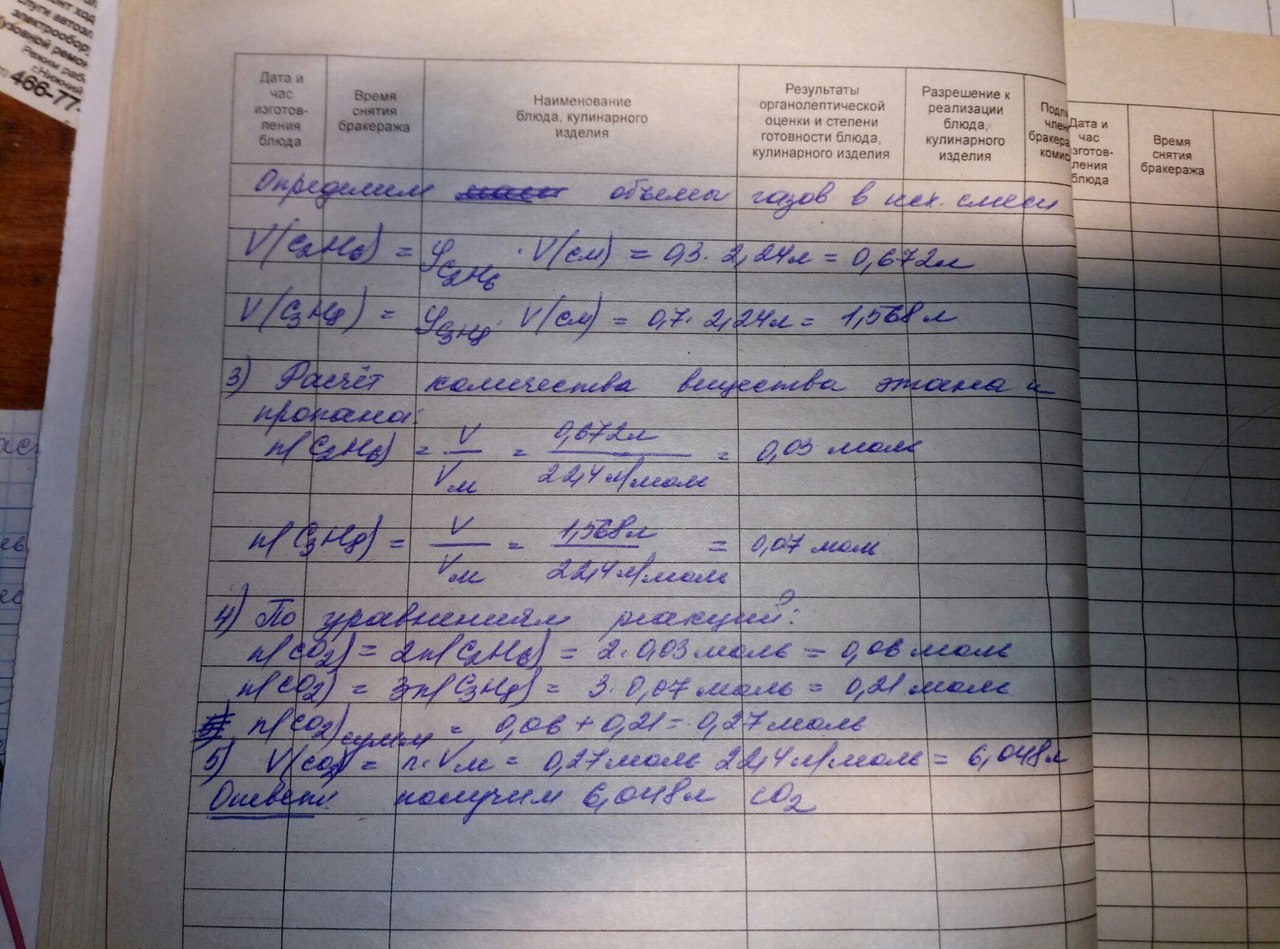 466-77-
Дата и
час
изготов-
ления
блюда
Время
снятия
бракеража
Наименование
блюда, кулинарного
изделия
Результаты
органолептической
оценки и степени
готовности блюда,
кулинарного изделия
Разрешение к
реализации
блюда,
кулинарного
изделия
Дата и
час
зготов-
ления
блюда
Время
снятия
бракеража
Определим объемы газов в исх. смеси
V(C2H6) = φC2H6 · V(см) = 0,3 · 2,24л = 0,672л
V(C3H8) = φC3H8 · V(см) = 0,7 · 2,24л = 1,568л
3) Расчёт количества вещества этана и
пропана:
n(C2H6) = V/Vм = 0,672л/22,4 л/моль = 0,03 моль
n(C3H8) = V/Vм = 1,568л/22,4 л/моль = 0,07 моль
4) По уравнениям реакций:
n(CO2) = 2n(C2H6) = 2 · 0,03 моль = 0,06 моль
n(CO2) = 3n(C3H8) = 3 · 0,07 моль = 0,21 моль
n(CO2)сумм = 0,06 + 0,21 = 0,27 моль
5) V(CO2) = n · Vм = 0,27 моль · 22,4 л/моль = 6,048л
Ответ: получим 6,048л CO2